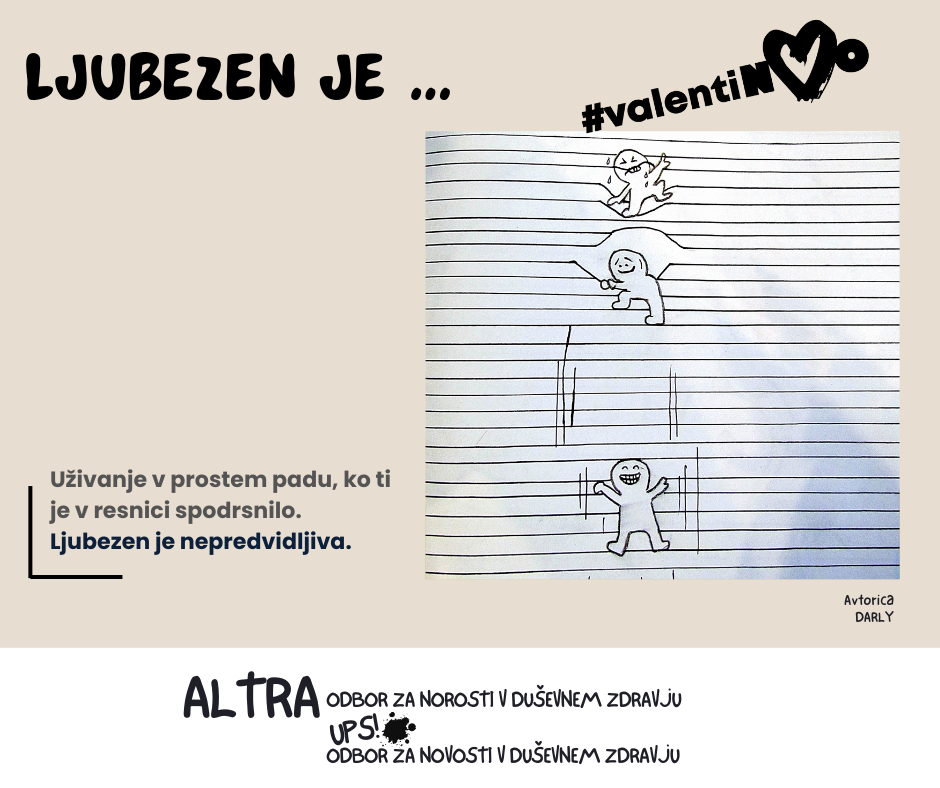 LJUBEZEN JE ...
#valentiNovo
Uživanje v prostem padu, ko ti
je v resnici spodrsnilo.
Ljubezen je nepredvidljiva.
Avtorica
DARLY
ALTRA ODBOR ZA NOROSTI V DUŠEVNEM ZDRAVJU
UPS!
ODBOR ZA NOVOSTI V DUŠEVNEM ZDRAVJU